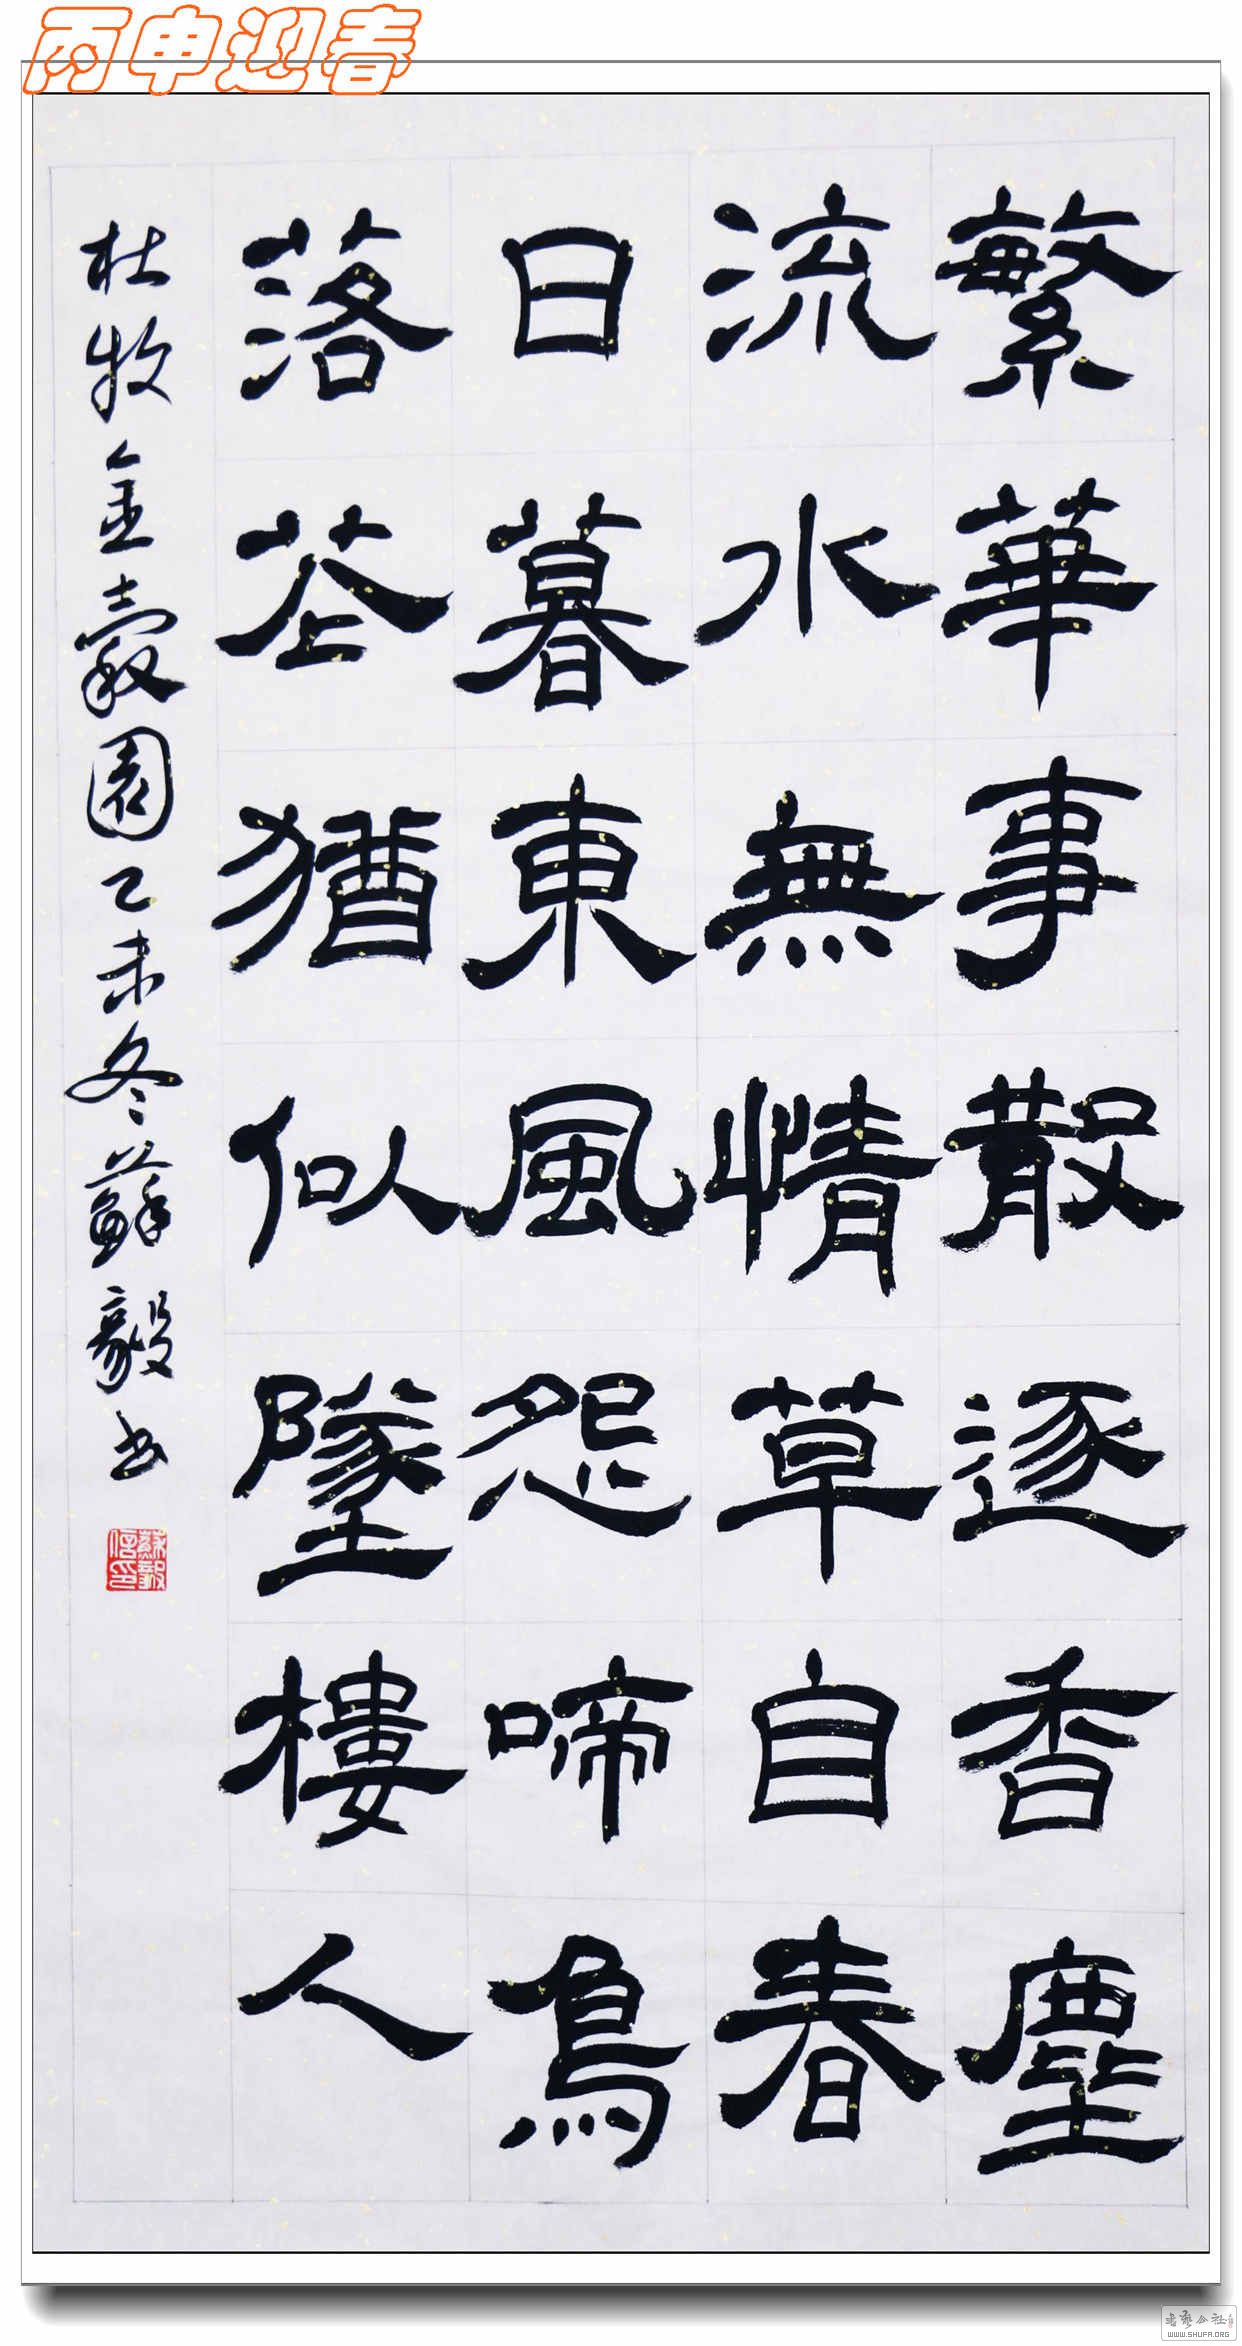 丙申迎春
繁華事散逐香塵
流水無情草自春
日暮東風怨啼鳥
落花猶似墜樓人
杜牧金穀園乙未冬蘇毅书
蘇毅信印
WWW.SHUFA.ORG